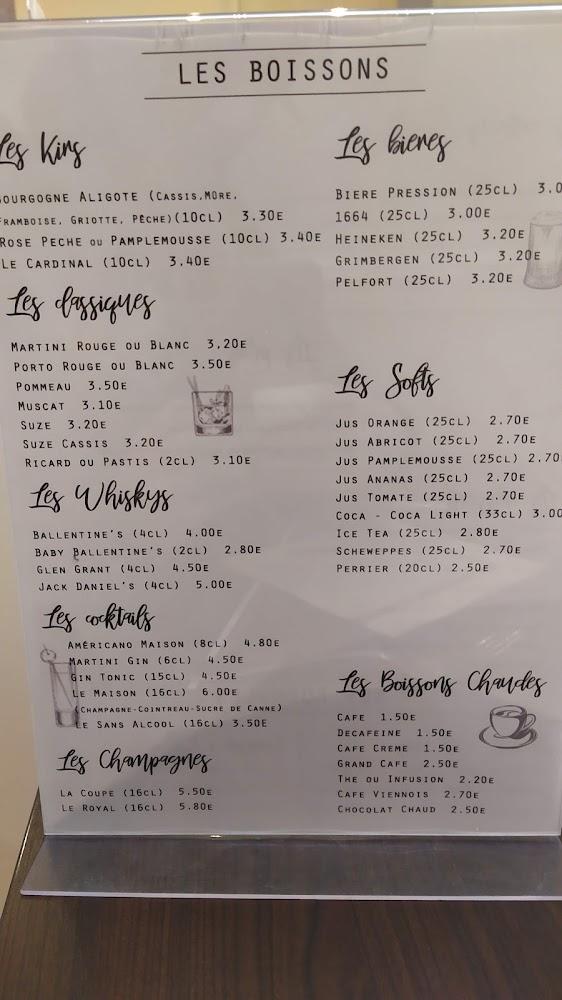 LES BOISSONS
Les Kirs
BOURGOGNE ALIGOTE (CASSIS,MÛRE,
FRAMBOISE, GRIOTTE, PÊCHE)(10CL) 3.30E
ROSE PECHE OU PAMPLEMOUSSE (10CL) 3.40E
LE CARDINAL (10CL) 3.40E
Les classiques
MARTINI ROUGE OU BLANC 3,20E
PORTO ROUGE OU BLANC 3.50E
POMMEAU 3.50E
MUSCAT 3.10E
SUZE 3.20E
SUZE CASSIS 3.20E
RICARD OU PASTIS (2CL) 3.10E
Les Whiskys
BALLENTINE'S (4CL) 4.00E
BABY BALLENTINE'S (2CL) 2.80E
GLEN GRANT (4CL) 4.50E
JACK DANIEL'S (4CL) 5.00E
Les cocktails
AMÉRICANO MAISON (8CL) 4.80E
MARTINI GIN (6CL) 4.50E
GIN TONIC (15CL) 4.50E
LE MAISON (16CL) 6.00E
(CHAMPAGNE-COINTREAU-SUCRE DE CANNE)
LE SANS ALCOOL (16CL) 3.50E
Les Champagnes
LA COUPE (16CL) 5.50E
LE ROYAL (16CL) 5.80E
Les bieres
BIERE PRESSION (25CL) 3.0
1664 (25CL) 3.00E
HEINEKEN (25CL) 3.20E
GRIMBERGEN (25CL) 3.20E
PELFORT (25CL) 3.20E
Les Softs
JUS ORANGE (25CL) 2.70E
JUS ABRICOT (25CL) 2.70E
JUS PAMPLEMOUSSE (25CL) 2.70
JUS ANANAS (25CL) 2.70E
JUS TOMATE (25CL) 2.70E
COCA - COCA LIGHT (33CL) 3.00
ICE TEA (25CL) 2.80E
SCHEWEPPES (25CL) 2.70E
PERRIER (20CL) 2.50E
Les Boissons Chaudes
CAFE 1.50E
DECAFEINE 1.50E
CAFE CREME 1.50E
GRAND CAFE 2.50E
THE OU INFUSION 2.20E
CAFE VIENNOIS 2.70E
CHOCOLAT CHAUD 2.50E